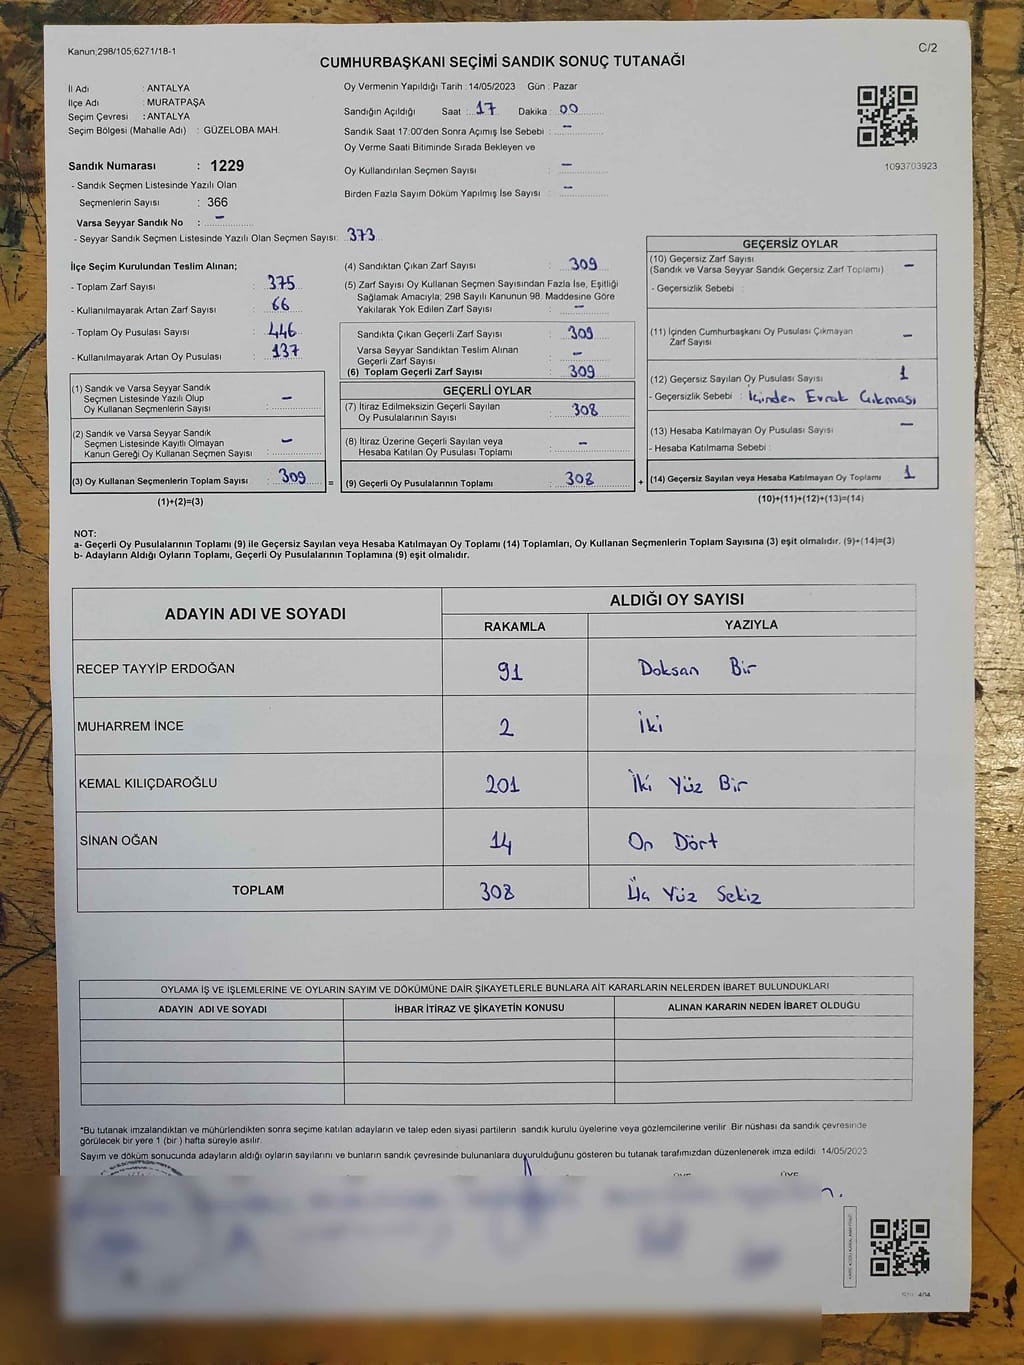 Kanun;298/105;6271/18-1
C/2
CUMHURBAŞKANI SEÇİMİ SANDIK SONUÇ TUTANAĞI
İl Adı : ANTALYA
İlçe Adı : MURATPAŞA
Seçim Çevresi : ANTALYA
Seçim Bölgesi (Mahalle Adı) : GÜZELOBA MAH.
Oy Vermenin Yapıldığı Tarih : 14/05/2023 Gün : Pazar
Sandığın Açıldığı Saat : 17 Dakika : 00
Sandık Saat 17:00'den Sonra Açımış İse Sebebi : -
Oy Verme Saati Bitiminde Sırada Bekleyen ve
Oy Kullandırılan Seçmen Sayısı : -
Birden Fazla Sayım Döküm Yapılmış İse Sayısı : -
1093703923
Sandık Numarası : 1229
- Sandık Seçmen Listesinde Yazılı Olan
Seçmenlerin Sayısı : 366
Varsa Seyyar Sandık No : -
- Seyyar Sandık Seçmen Listesinde Yazılı Olan Seçmen Sayısı: 373
İlçe Seçim Kurulundan Teslim Alınan;
- Toplam Zarf Sayısı : 375
- Kullanılmayarak Artan Zarf Sayısı : 66
- Toplam Oy Pusulası Sayısı : 446
- Kullanılmayarak Artan Oy Pusulası : 137
(1) Sandık ve Varsa Seyyar Sandık
Seçmen Listesinde Yazılı Olup
Oy Kullanan Seçmenlerin Sayısı : -
(2) Sandık ve Varsa Seyyar Sandık
Seçmen Listesinde Kayıtlı Olmayan
Kanun Gereği Oy Kullanan Seçmen Sayısı : -
(3) Oy Kullanan Seçmenlerin Toplam Sayısı : 309 =
(1)+(2)=(3)
(4) Sandıktan Çıkan Zarf Sayısı : 309
(5) Zarf Sayısı Oy Kullanan Seçmen Sayısından Fazla İse, Eşitliği
Sağlamak Amacıyla; 298 Sayılı Kanunun 98. Maddesine Göre
Yakılarak Yok Edilen Zarf Sayısı : -
Sandıkta Çıkan Geçerli Zarf Sayısı : 309
Varsa Seyyar Sandıktan Teslim Alınan
Geçerli Zarf Sayısı : -
(6) Toplam Geçerli Zarf Sayısı : 309
GEÇERLİ OYLAR
(7) İtiraz Edilmeksizin Geçerli Sayılan
Oy Pusulalarının Sayısı : 308
(8) İtiraz Üzerine Geçerli Sayılan veya
Hesaba Katılan Oy Pusulası Toplamı : -
(9) Geçerli Oy Pusulalarının Toplamı : 308 +
GEÇERSİZ OYLAR
(10) Geçersiz Zarf Sayısı
(Sandık ve Varsa Seyyar Sandık Geçersiz Zarf Toplamı) -
- Geçersizlik Sebebi :
(11) İçinden Cumhurbaşkanı Oy Pusulası Çıkmayan
Zarf Sayısı -
(12) Geçersiz Sayılan Oy Pusulası Sayısı 1
- Geçersizlik Sebebi : İçinden Evrak Çıkması
(13) Hesaba Katılmayan Oy Pusulası Sayısı -
- Hesaba Katılmama Sebebi :
(14) Geçersiz Sayılan veya Hesaba Katılmayan Oy Toplamı 1
(10)+(11)+(12)+(13)=(14)
NOT:
a- Geçerli Oy Pusulalarının Toplamı (9) ile Geçersiz Sayılan veya Hesaba Katılmayan Oy Toplamı (14) Toplamları, Oy Kullanan Seçmenlerin Toplam Sayısına (3) eşit olmalıdır. (9)+(14)=(3)
b- Adayların Aldığı Oyların Toplamı, Geçerli Oy Pusulalarının Toplamına (9) eşit olmalıdır.
ADAYIN ADI VE SOYADI
ALDIĞI OY SAYISI
RAKAMLA YAZIYLA
RECEP TAYYİP ERDOĞAN 91 Doksan Bir
MUHARREM İNCE 2 İki
KEMAL KILIÇDAROĞLU 201 İki Yüz Bir
SİNAN OĞAN 14 On Dört
TOPLAM 308 Üç Yüz Sekiz
OYLAMA İŞ VE İŞLEMLERİNE VE OYLARIN SAYIM VE DÖKÜMÜNE DAİR ŞİKAYETLERLE BUNLARA AİT KARARLARIN NELERDEN İBARET BULUNDUKLARI
ADAYIN ADI VE SOYADI İHBAR İTİRAZ VE ŞİKAYETİN KONUSU ALINAN KARARIN NEDEN İBARET OLDUĞU
*Bu tutanak imzalandıktan ve mühürlendikten sonra seçime katılan adayların ve talep eden siyasi partilerin sandık kurulu üyelerine veya gözlemcilerine verilir. Bir nüshası da sandık çevresinde
görülecek bir yere 1 (bir) hafta süreyle asılır.
Sayım ve döküm sonucunda adayların aldığı oyların sayılarını ve bunların sandık çevresinde bulunanlara duyurulduğunu gösteren bu tutanak tarafımızdan düzenlenerek imza edildi. 14/05/2023